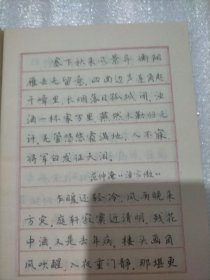 塞下秋来风景异,衡阳
雁去无留意。四面边声连角起
千嶂里,长烟落日孤城闭。浊
酒一杯家万里,燕然未勒归无
计,羌管悠悠霜满地。人不寐
将军白发征夫泪。
范仲淹《渔家傲》
乍暖还轻冷,风雨晚来
方定。庭轩寂寞近清明,残花
中酒,又是去年病。楼头画角
风吹醒,入夜重门静。那堪更